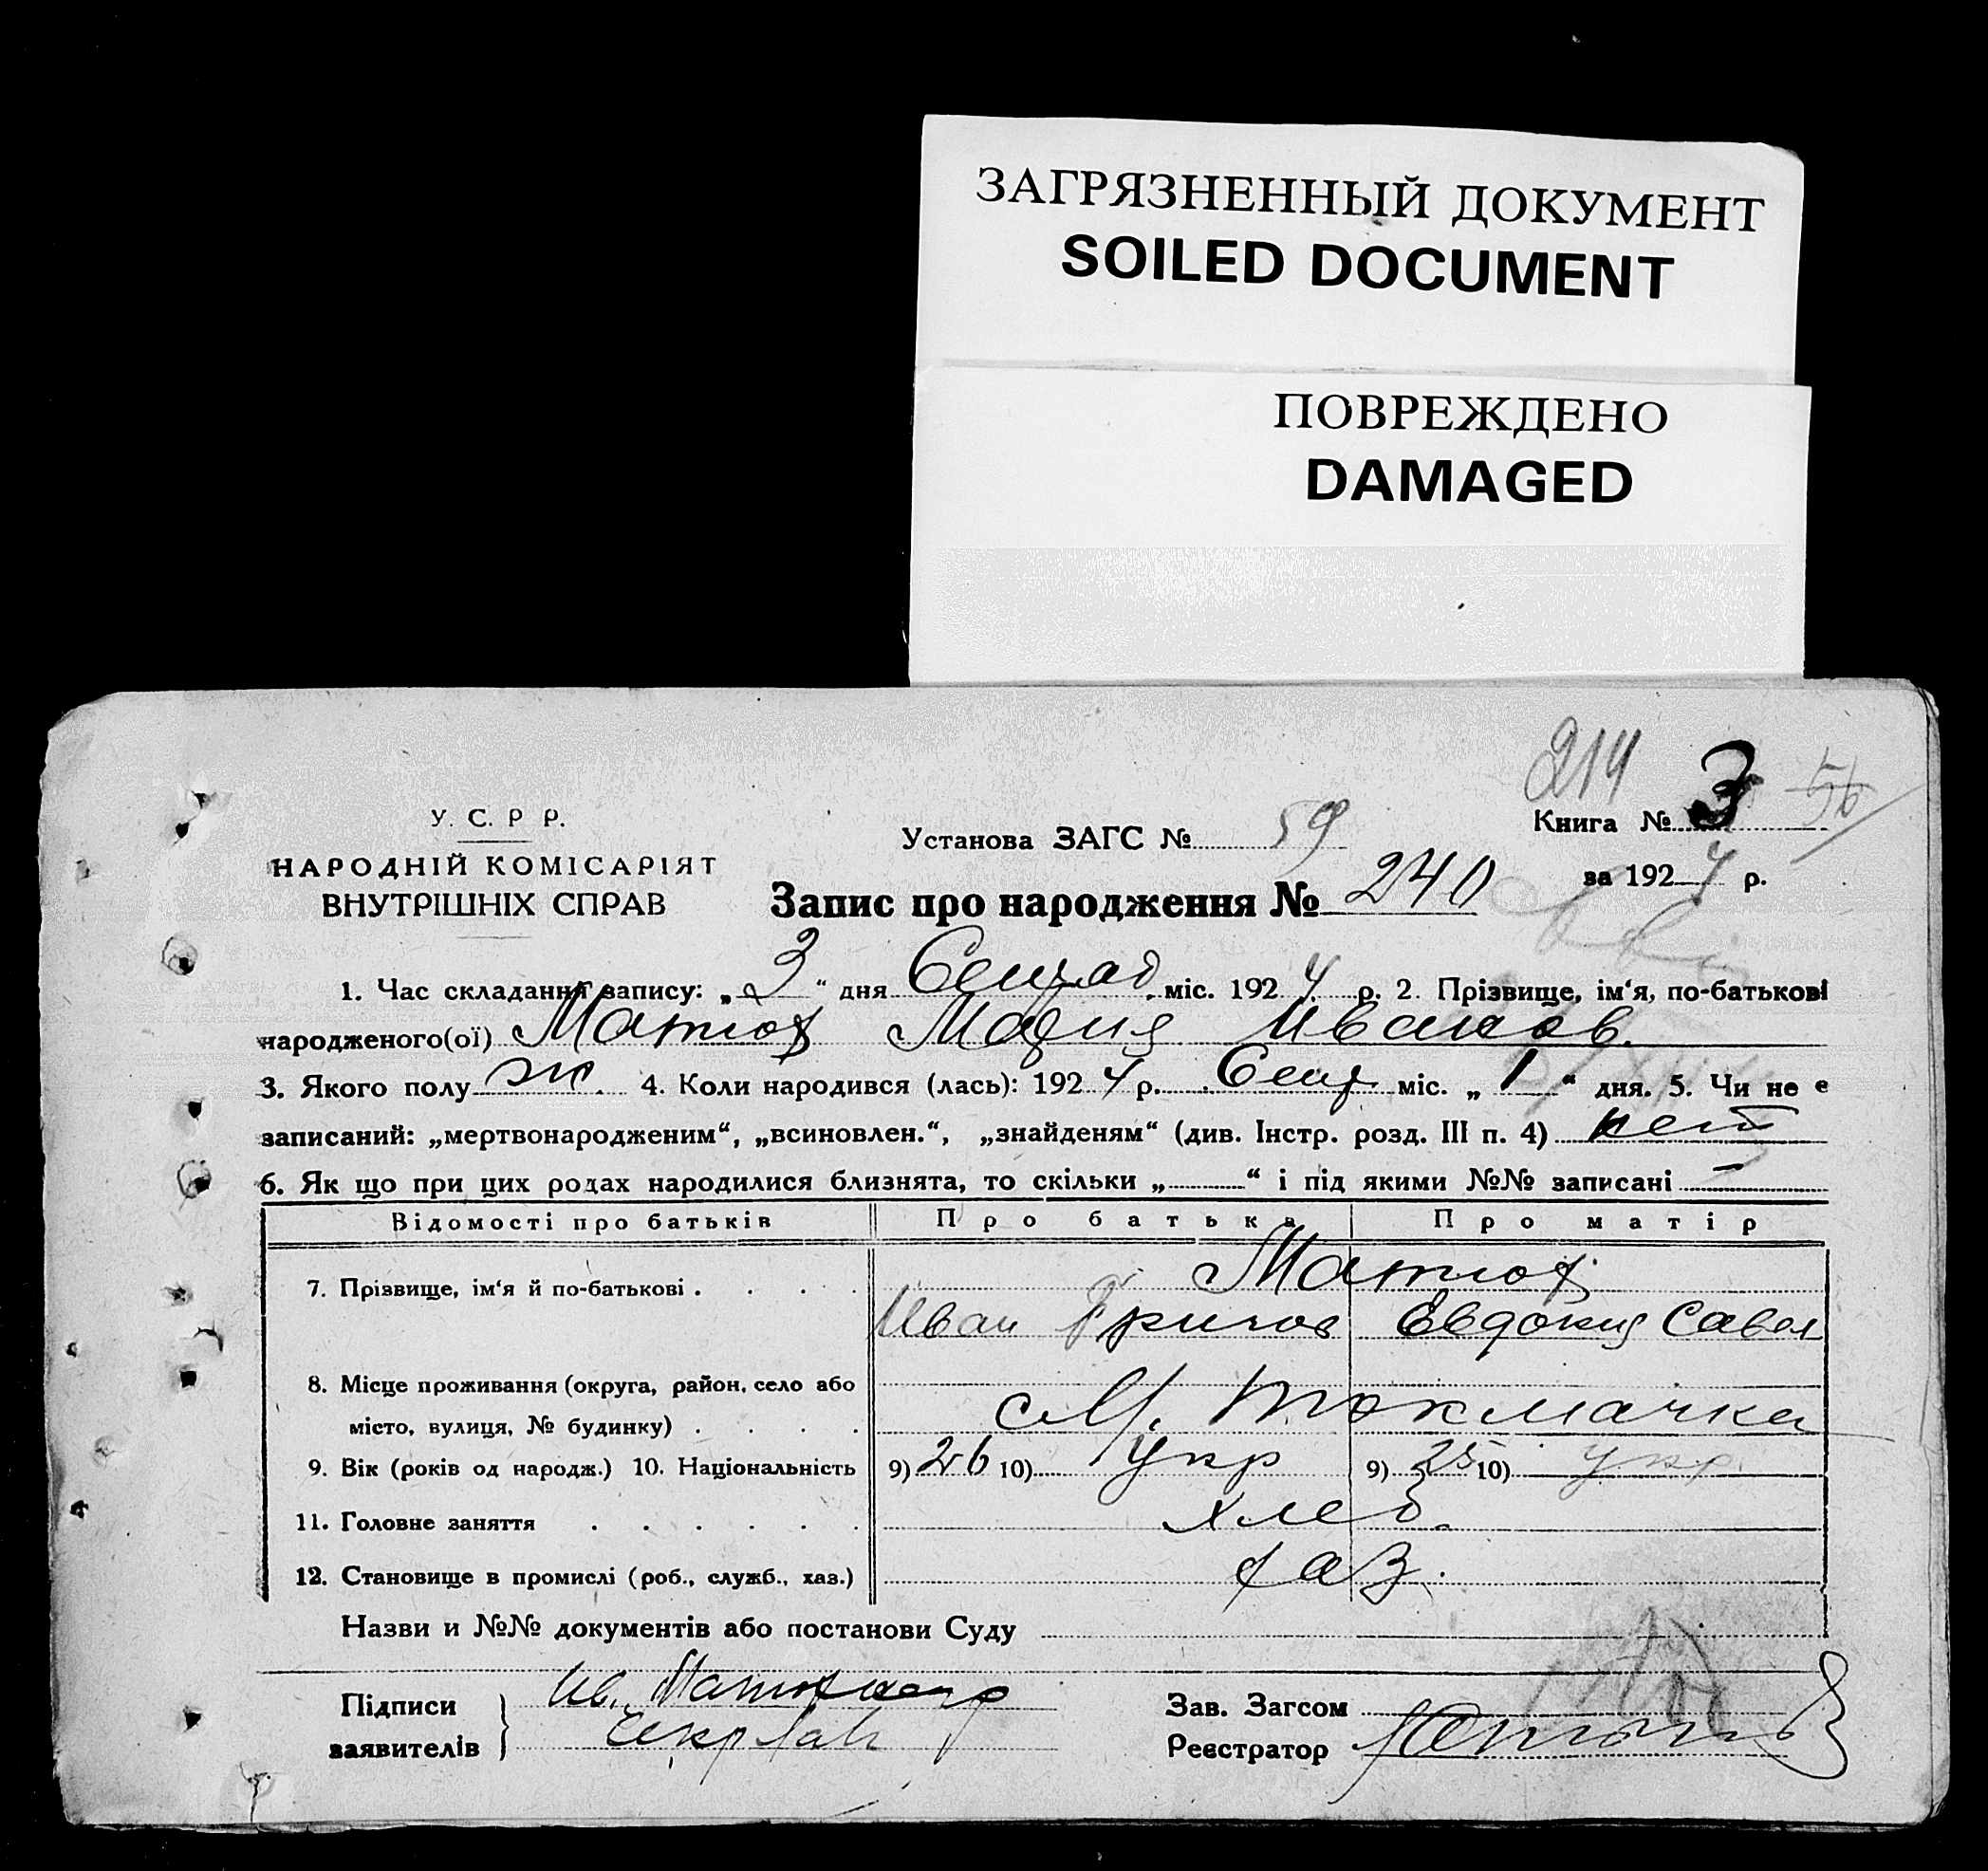 ЗАГРЯЗНЕННЫЙ ДОКУМЕНТ
SOILED DOCUMENT
ПОВРЕЖДЕНО
DAMAGED
214
У. С. Р Р.
НАРОДНІЙ КОМІСАРІЯТ
ВНУТРІШНІХ СПРАВ
Установа ЗАГС № 59
Книга № 3 56
за 1924 р.
Запис про народження № 240
1. Час складання запису: „3“ дня міс. 1924 р. 2. Прізвище, ім'я, по-батькові
народженого(ої) Матюх Мария Иванов.
3. Якого полу ж. 4. Коли народився (лась): 1924 р. Сент міс. „1“ дня. 5. Чи не є
записаний: „мертвонародженим“, „всиновлен.“, „знайденям“ (див. Інстр. розд. III п. 4) нет
6. Як що при цих родах народилися близнята, то скільки „ “ і під якими №№ записані —
Відомості про батьків Про батька Про матір
7. Прізвище, ім'я й по-батькові . . . . Матюх
Иван Григор Евдокия Савел
8. Місце проживання (округа, район, село або
місто, вулиця, № будинку) . . . . с М. Токмачка
9. Вік (років од народж.) 10. Національність 9) 26 10) Укр 9) 25 10) укр.
11. Головне заняття . . . . . . хлеб.
12. Становище в промислі (роб., служб., хаз.) хаз.
Назви и №№ документів або постанови Суду
Підписи
заявителів
Зав. Загсом
Реєстратор